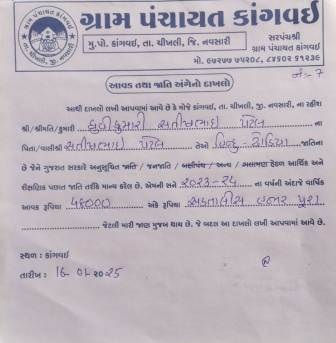 ગ્રામ પંચાયત કાંગવઈ
મુ.પો. કાંગવઈ, તા. ચીખલી, જિ. નવસારી
સરપંચશ્રી
ગ્રામ પંચાયત કાંગવઈ
મો. ૯૭૨૭૭ ૫૫૨૦૮, ૮૪૬૦૨ ૬૧૨૩૯
નં:- 7
આવક તથા જાતિ અંગેનો દાખલો
આથી દાખલો લખી આપવામાં આવે છે કે મોજે કાંગવઈ, તા. ચીખલી, જી. નવસારી, ના રહીશ
શ્રી/શ્રીમતિ/કુમારી સતીષભાઇ પટેલ ના
પિતા/વાલીશ્રી સતીષભાઇ પટેલ તેઓ હિન્દુ - ધોડિયા જાતિના
છે જેને ગુજરાત સરકારે અનુસૂચિત જાતિ / જનજાતિ / બક્ષીપંચ / અન્ય / ભલામણ હેઠળ આર્થિક અને
શૈક્ષણિક પછાત જાતિ તરીકે માન્ય કરેલ છે. એમની સને ૨૦૨૩-૨૪ ના વર્ષની અંદાજે વાર્ષિક
આવક રૂપિયા ૪૮૦૦૦ અંકે રૂપિયા અડતાલીસ હજાર પુરા
જેટલી મારી જાણ મુજબ થાય છે. જે બદલ આ દાખલો લખી આપવામાં આવે છે.
સ્થળ : કાંગવઈ
તારીખ : 16-01-૨૦25